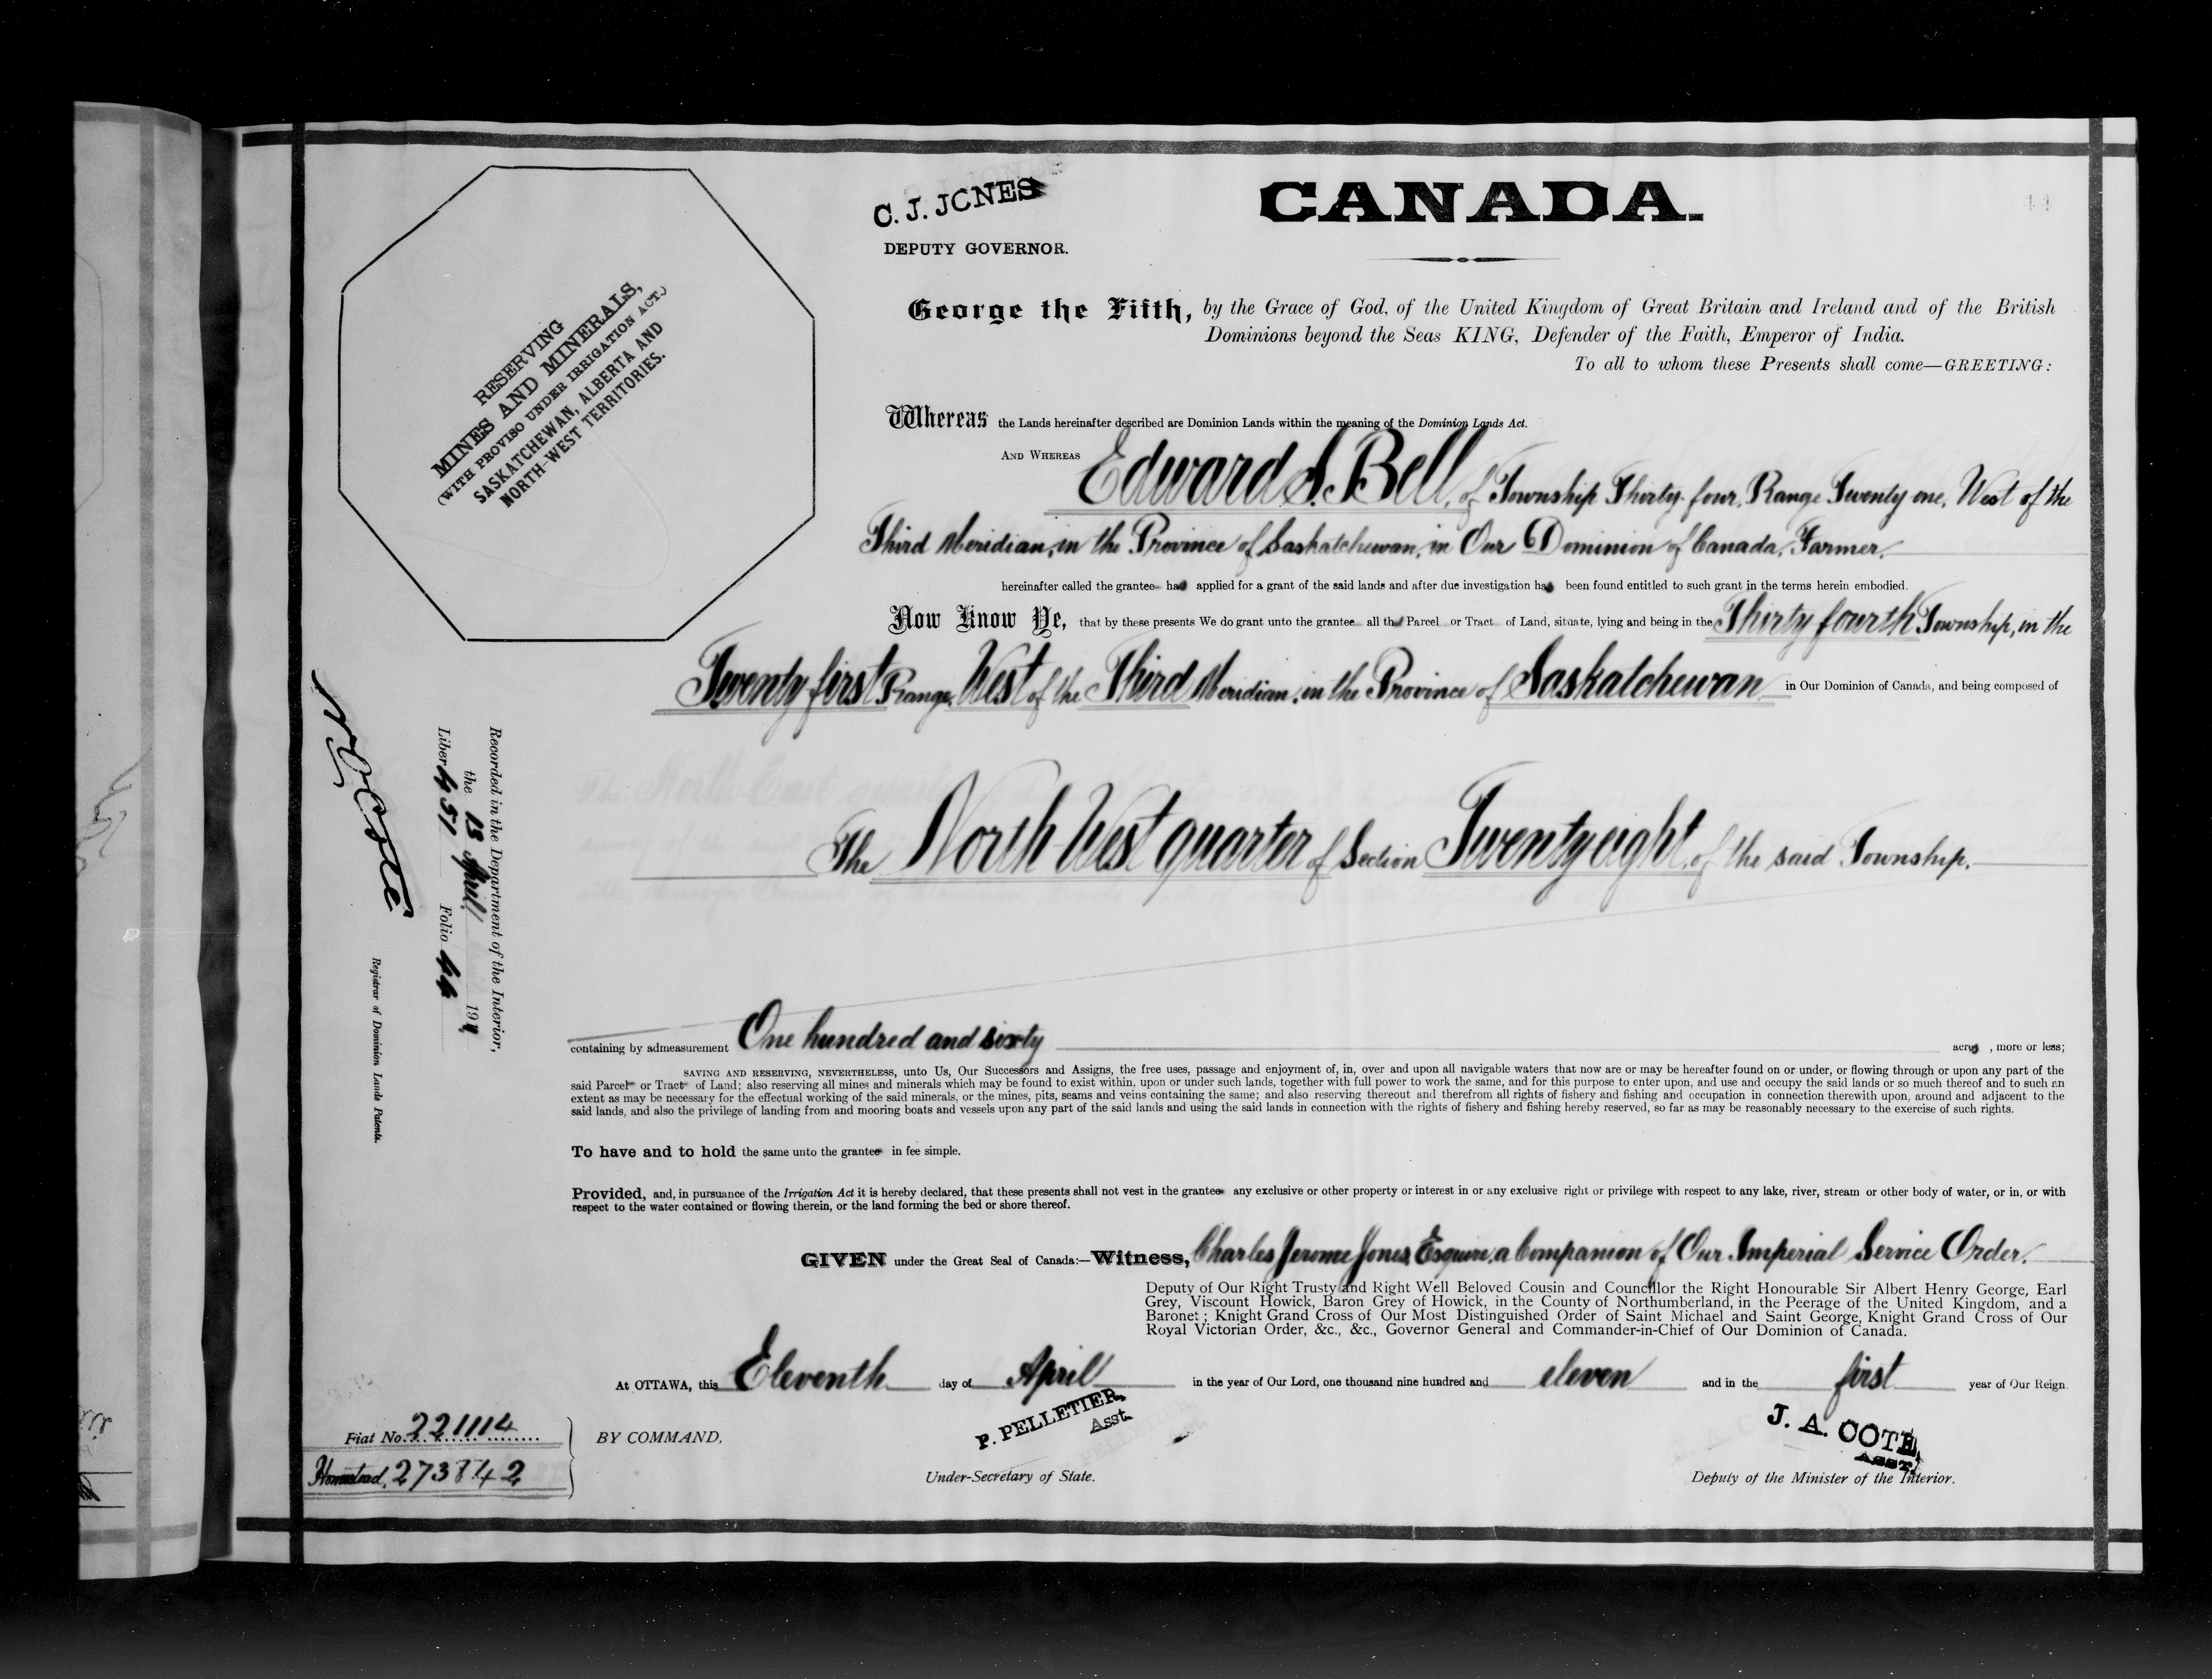 C. J. JONES
DEPUTY GOVERNOR.
CANADA.
44
RESERVING
MINES AND MINERALS,
(WITH PROVISO UNDER IRRIGATION ACT.)
SASKATCHEWAN, ALBERTA AND
NORTH-WEST TERRITORIES.
George the Fifth, by the Grace of God, of the United Kingdom of Great Britain and Ireland and of the British
Dominions beyond the Seas KING, Defender of the Faith, Emperor of India.
To all to whom these Presents shall come—GREETING:
Whereas the Lands hereinafter described are Dominion Lands within the meaning of the Dominion Lands Act.
AND WHEREAS Edward S. Bell, of Township Thirty-four, Range Twenty one, West of the
Third Meridian, in the Province of Saskatchewan, in Our Dominion of Canada, Farmer,
hereinafter called the grantee has applied for a grant of the said lands and after due investigation has been found entitled to such grant in the terms herein embodied.
Now Know Ye, that by these presents We do grant unto the grantee all that Parcel or Tract of Land, situate, lying and being in the Thirty fourth Township, in the
Twenty first Range, West of the Third Meridian, in the Province of Saskatchewan in Our Dominion of Canada, and being composed of
The North West quarter of Section Twenty eight, of the said Township,
containing by admeasurement One hundred and sixty acres, more or less;
SAVING AND RESERVING, NEVERTHELESS, unto Us, Our Successors and Assigns, the free uses, passage and enjoyment of, in, over and upon all navigable waters that now are or may be hereafter found on or under, or flowing through or upon any part of the
said Parcel or Tract of Land; also reserving all mines and minerals which may be found to exist within, upon or under such lands, together with full power to work the same, and for this purpose to enter upon, and use and occupy the said lands or so much thereof and to such an
extent as may be necessary for the effectual working of the said minerals, or the mines, pits, seams and veins containing the same; and also reserving thereout and therefrom all rights of fishery and fishing and occupation in connection therewith upon, around and adjacent to the
said lands, and also the privilege of landing from and mooring boats and vessels upon any part of the said lands and using the said lands in connection with the rights of fishery and fishing hereby reserved, so far as may be reasonably necessary to the exercise of such rights.
To have and to hold the same unto the grantee in fee simple.
Provided, and, in pursuance of the Irrigation Act it is hereby declared, that these presents shall not vest in the grantee any exclusive or other property or interest in or any exclusive right or privilege with respect to any lake, river, stream or other body of water, or in, or with
respect to the water contained or flowing therein, or the land forming the bed or shore thereof.
GIVEN under the Great Seal of Canada:—Witness, Charles Jerome Jones, Esquire, a Companion of Our Imperial Service Order.
Deputy of Our Right Trusty and Right Well Beloved Cousin and Councillor the Right Honourable Sir Albert Henry George, Earl
Grey, Viscount Howick, Baron Grey of Howick, in the County of Northumberland, in the Peerage of the United Kingdom, and a
Baronet; Knight Grand Cross of Our Most Distinguished Order of Saint Michael and Saint George, Knight Grand Cross of Our
Royal Victorian Order, &c., &c., Governor General and Commander-in-Chief of Our Dominion of Canada.
At OTTAWA, this Eleventh day of April in the year of Our Lord, one thousand nine hundred and eleven and in the first year of Our Reign
BY COMMAND,
P. PELLETIER,
Asst.
Under-Secretary of State.
J. A. COTE,
ASST.
Deputy of the Minister of the Interior.
Fiat No. 221114
Homestead, 273842
Recorded in the Department of the Interior,
the 13 April 1911
Liber 451 Folio 44
N O Coté
Registrar of Dominion Lands Patents.